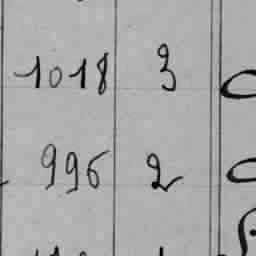 1018 3
996 2